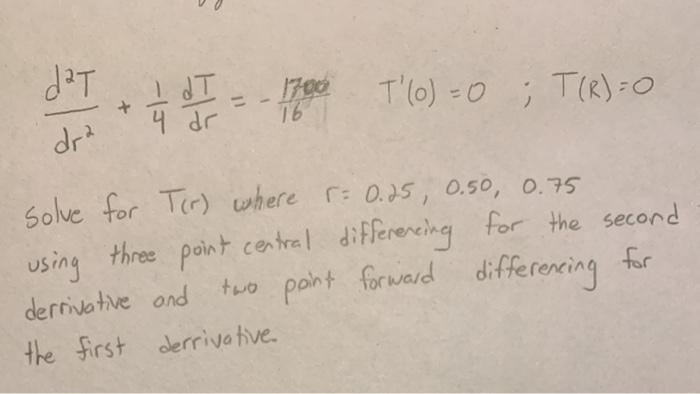 d²T/dr² + 1/4 dT/dr = - 1700/16 T'(0) = 0 ; T(R) = 0
Solve for T(r) where r = 0.25, 0.50, 0.75
using three point central differencing for the second
derrivative and two point forward differencing for
the first derrivative.